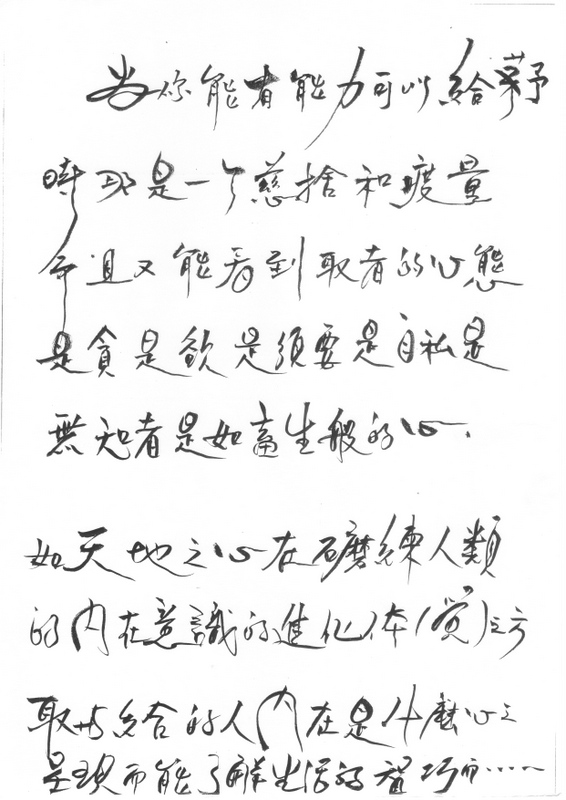 當你能有能力可以給予
時那是一個慈捨和度量
而且又能看到取者的心態
是貪是欲是須要是自私是
無知者是如畜生般的心.
如天地之心在磨練人類
的內在意識的進化体(覺)之方
取与給的人內在是什麼心之
呈現而能了解生活的智巧而……